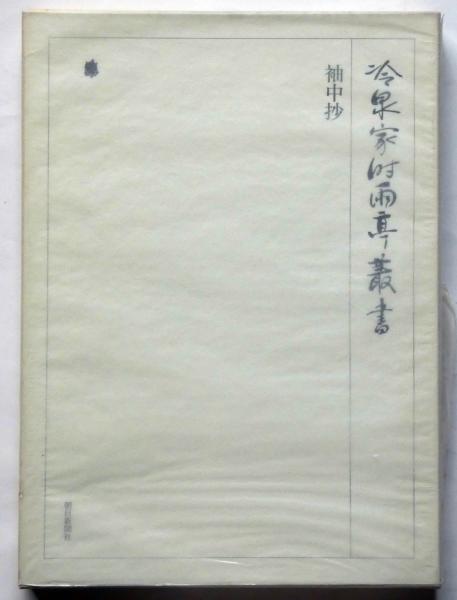 冷泉家時雨亭叢書
袖中抄
朝日新聞社